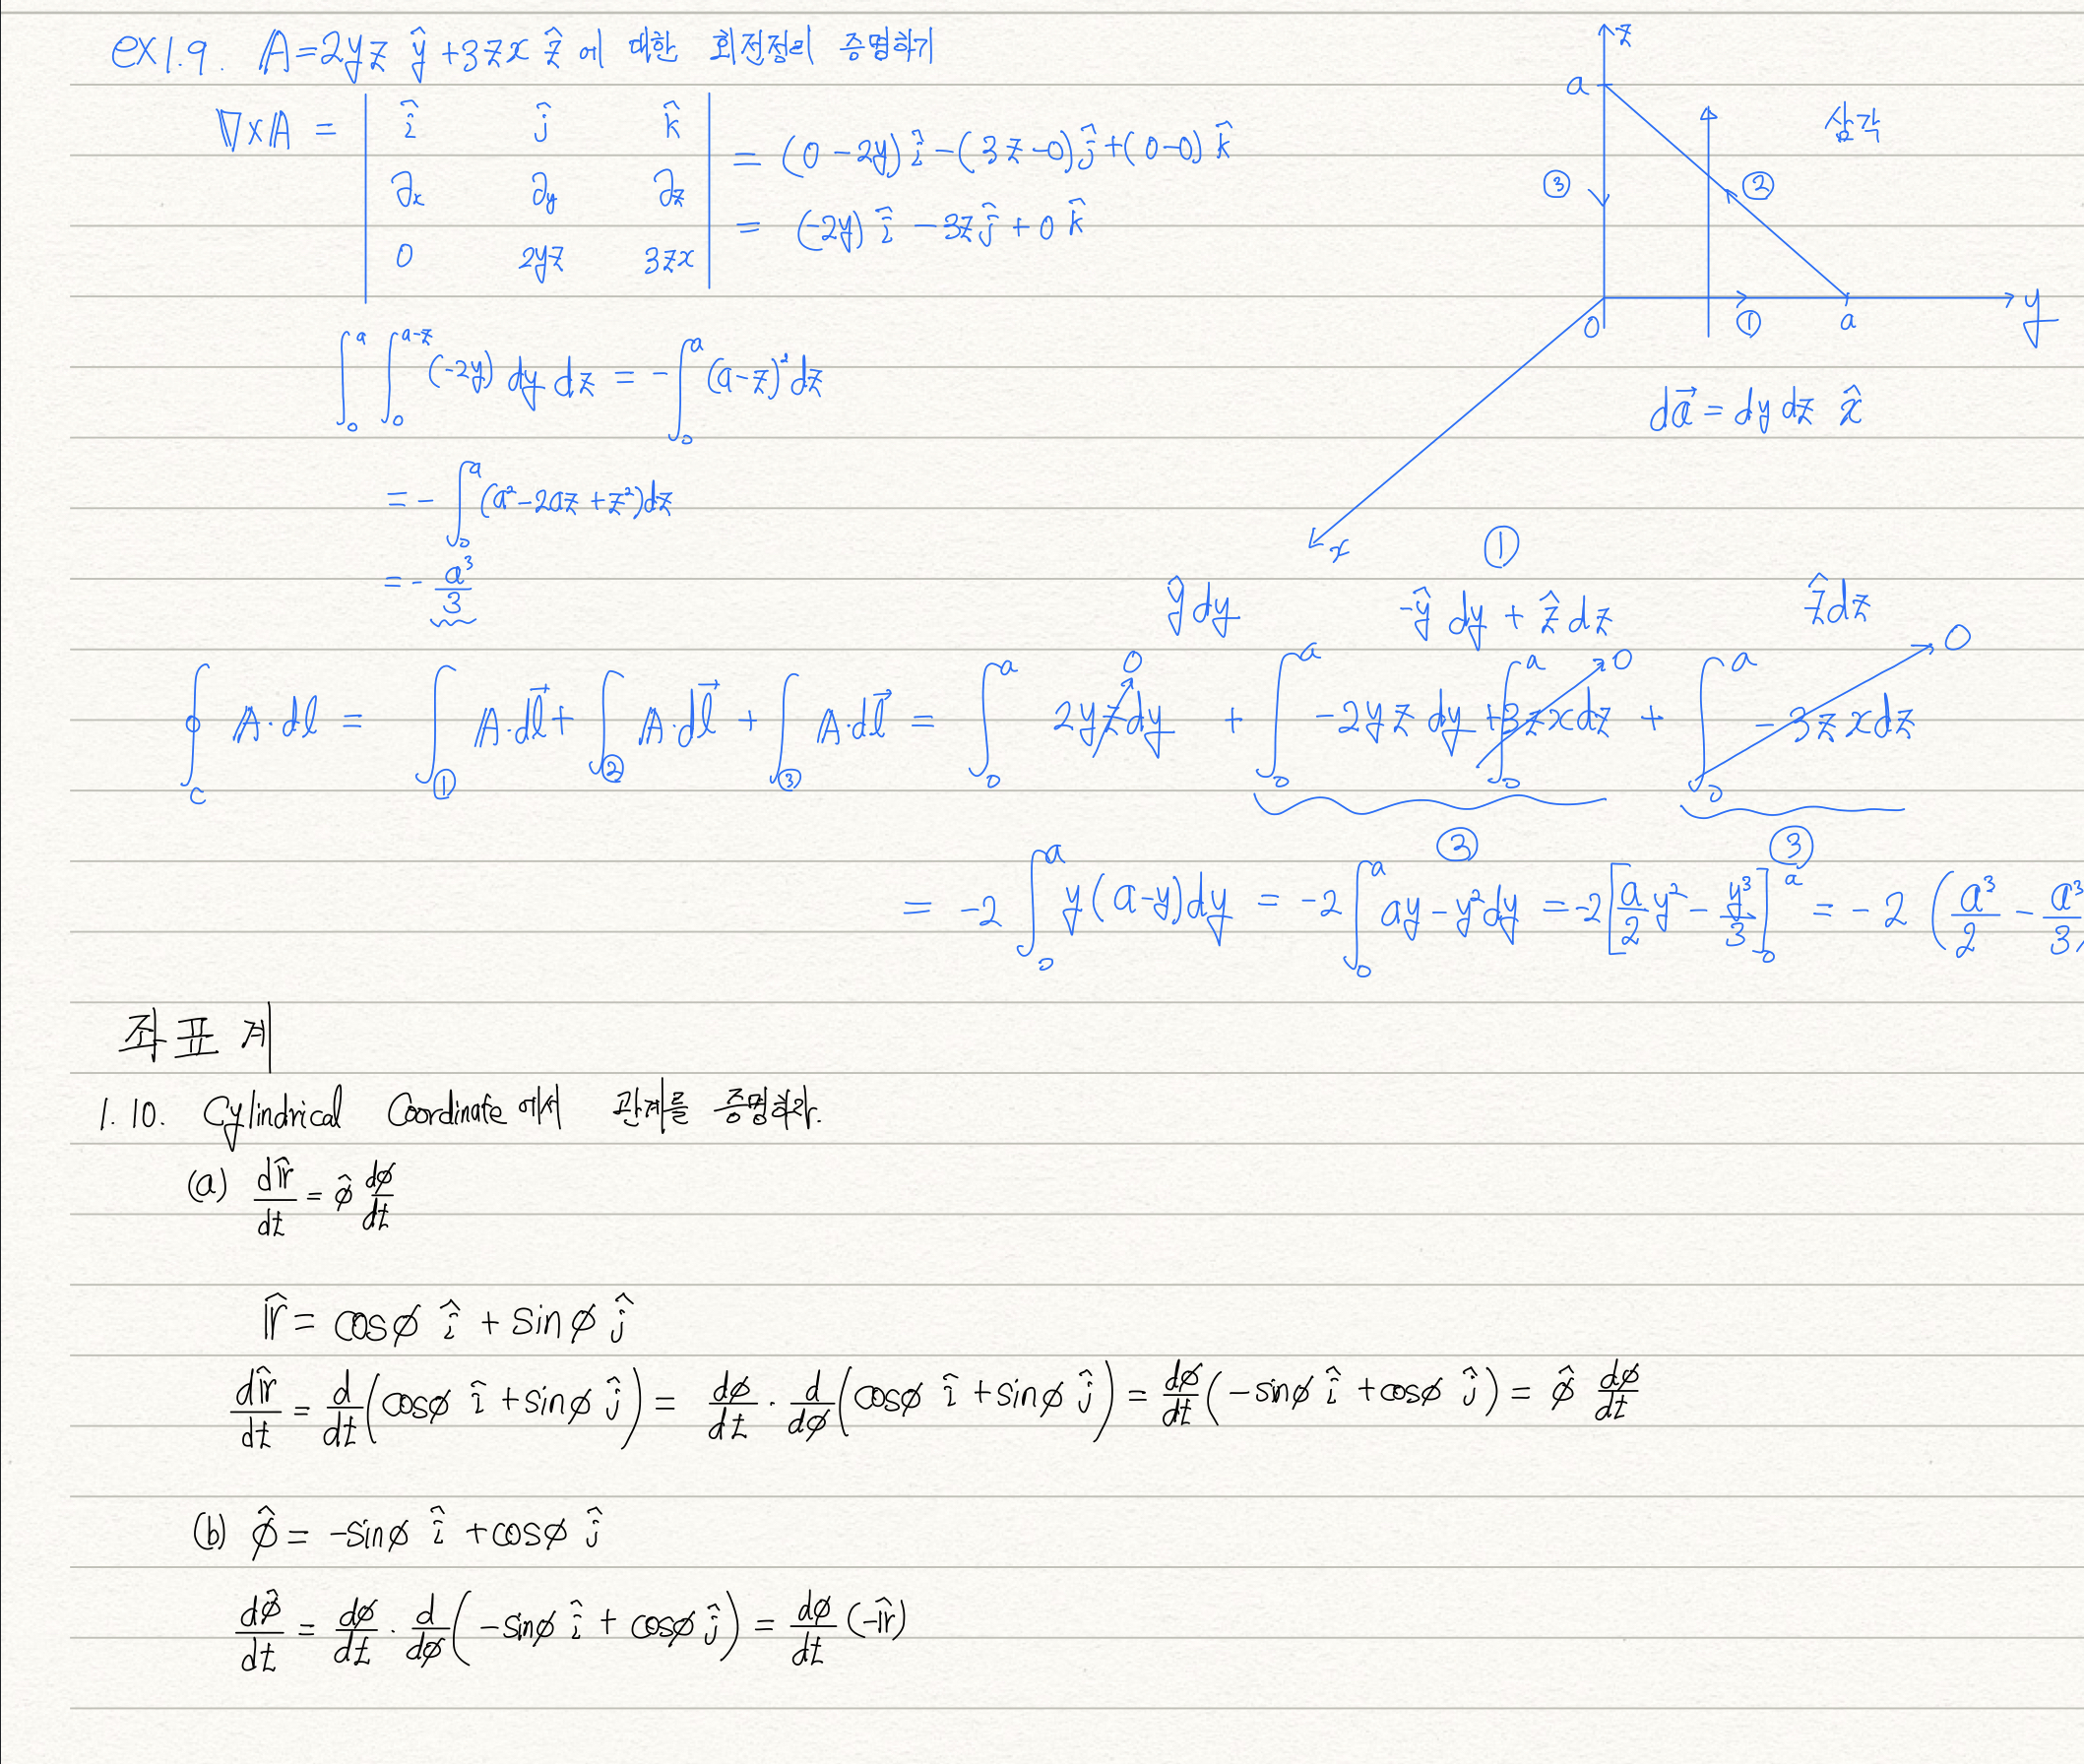 ex1.9. A=2yz ŷ +3zx ẑ 에 대한 회전정리 증명하기
∇×A = | î ĵ k̂ | = (0-2y) î -(3z-0) ĵ +(0-0) k̂
∂x ∂y ∂z
= (-2y) î -3z ĵ + 0 k̂
0 2yz 3zx
z
a
삼각
③ ②
0 ① a y
x
da⃗ = dy dz x̂
∫₀^a ∫₀^(a-z) (-2y) dy dz = -∫₀^a (a-z)² dz
= - ∫₀^a (a²-2az+z²)dz
= - a³/3
①
ŷ dy -ŷ dy + ẑ dz ẑdz
∮c A·dl = ∫① A·dl⃗ + ∫② A·dl⃗ + ∫③ A·dl⃗ = ∫₀^a 2yzdy → 0 + ∫₀^a -2yz dy + ∫₀^a 3zxdz → 0 + ∫₀^a -3zxdz → 0
③ ③
= -2 ∫₀^a y(a-y)dy = -2 ∫₀^a ay-y²dy = -2[a/2 y² - y³/3]₀^a = -2 (a³/2 - a³/3)
좌표계
1.10. Cylindrical Coordinate에서 관계를 증명하라.
(a) dr̂/dt = φ̂ dφ/dt
r̂ = cosφ î + sinφ ĵ
dr̂/dt = d/dt (cosφ î + sinφ ĵ) = dφ/dt · d/dφ (cosφ î + sinφ ĵ) = dφ/dt (-sinφ î + cosφ ĵ) = φ̂ dφ/dt
(b) φ̂ = -sinφ î + cosφ ĵ
dφ̂/dt = dφ/dt · d/dφ (-sinφ î + cosφ ĵ) = dφ/dt (-r̂)